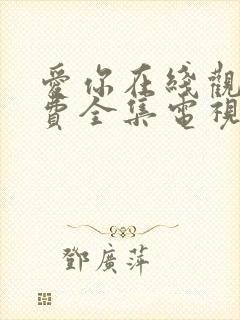 愛你在綫觀
費全集電視
鄧廣萍